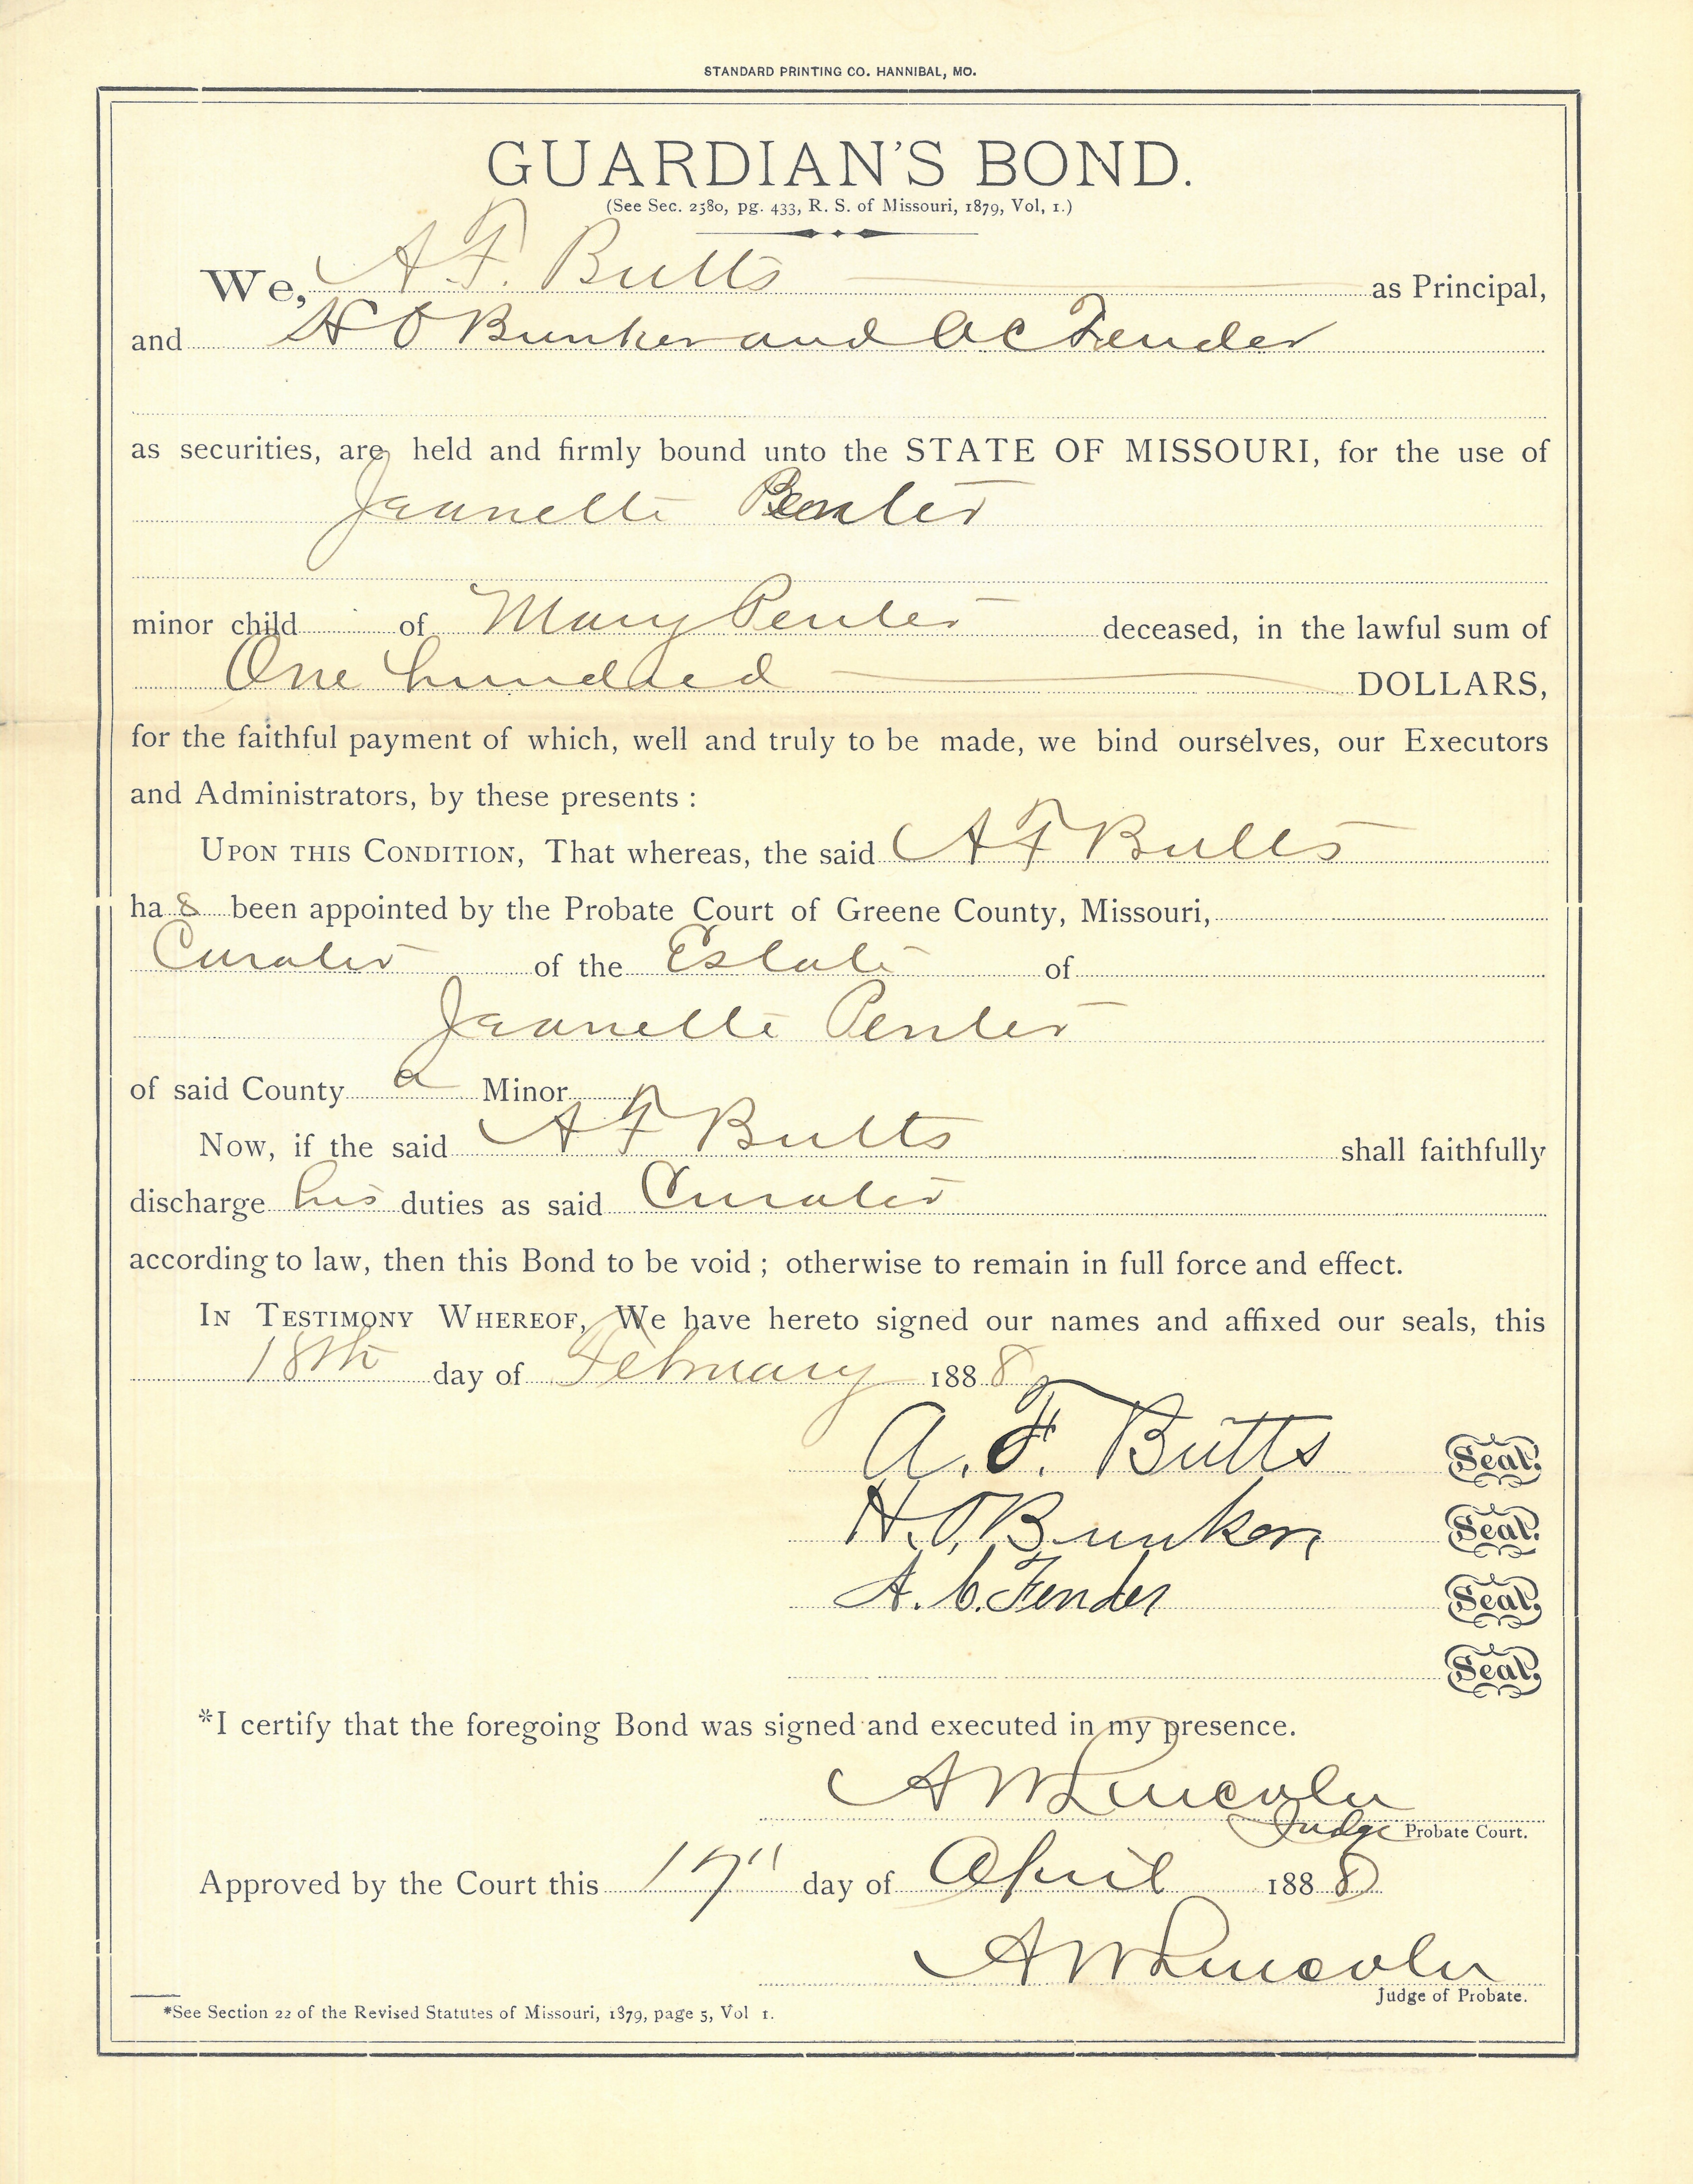 STANDARD PRINTING CO. HANNIBAL, MO.
GUARDIAN'S BOND.
(See Sec. 2580, pg. 433, R. S. of Missouri, 1879, Vol, 1.)
We, A F. Butts as Principal,
and H O Bunker and A C Fender
as securities, are held and firmly bound unto the STATE OF MISSOURI, for the use of
Jeanette Penter
minor child of Mary Penter deceased, in the lawful sum of
One hundred DOLLARS,
for the faithful payment of which, well and truly to be made, we bind ourselves, our Executors
and Administrators, by these presents :
UPON THIS CONDITION, That whereas, the said A F Butts
has been appointed by the Probate Court of Greene County, Missouri,
Curator of the Estate of
Jeanette Penter
of said County a Minor
Now, if the said A F Butts shall faithfully
discharge his duties as said Curator
according to law, then this Bond to be void ; otherwise to remain in full force and effect.
IN TESTIMONY WHEREOF, We have hereto signed our names and affixed our seals, this
18th day of February 1888
A. F. Butts Seal.
H. O. Bunker, Seal.
A. C. Fender Seal.
Seal.
*I certify that the foregoing Bond was signed and executed in my presence.
A W Lincoln
Judge Probate Court.
Approved by the Court this 17" day of April 1888
A W Lincoln
Judge of Probate.
*See Section 22 of the Revised Statutes of Missouri, 1879, page 5, Vol 1.